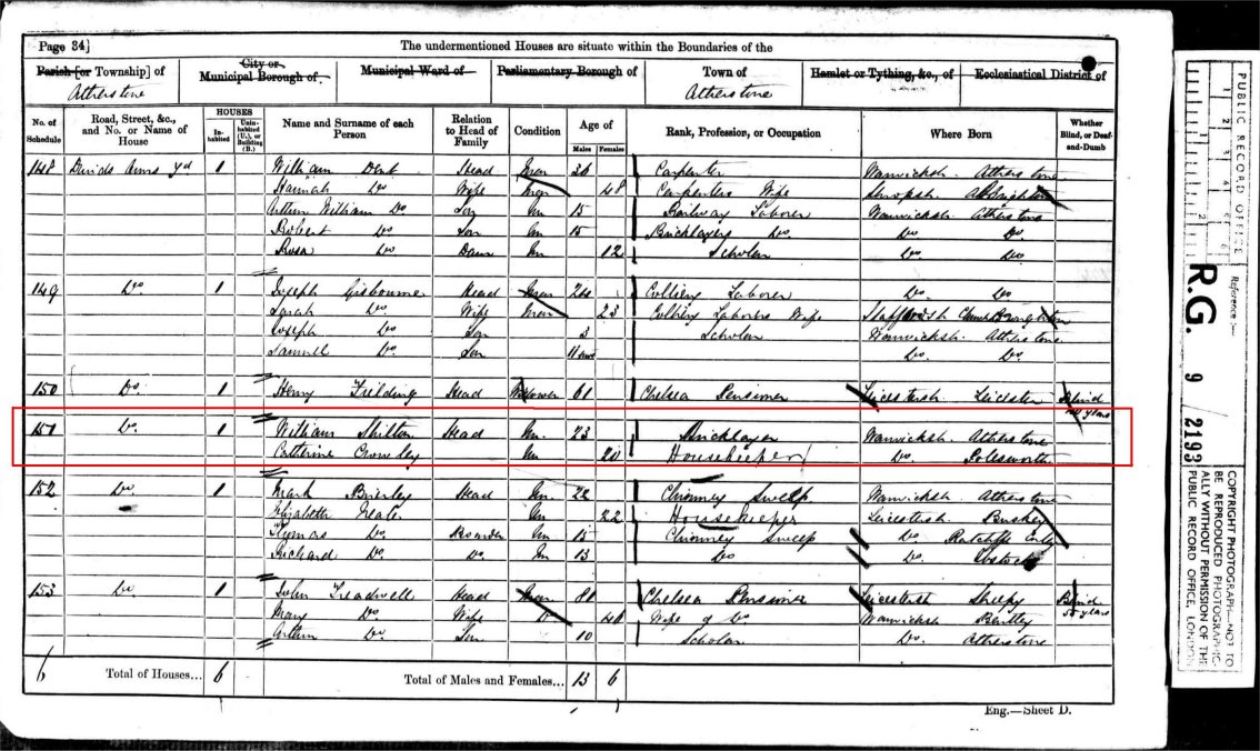 Page 34]
The undermentioned Houses are situate within the Boundaries of the
Parish [or Township] of
City or Municipal Borough of
Municipal Ward of
Parliamentary Borough of
Town of
Hamlet or Tything, &c., of
Ecclesiastical District of
Atherstone
Atherstone
No. of Schedule
Road, Street, &c., and No. or Name of House
HOUSES
In-habited
Unin-habited (U.), or Building (B.)
Name and Surname of each Person
Relation to Head of Family
Condition
Age of
Males
Females
Rank, Profession, or Occupation
Where Born
Whether Blind, or Deaf-and-Dumb
148 Arms Yd 1 William Dent Head Mar 36 Carpenter Warwicksh. Atherstone
Hannah Do Wife Mar 48 Carpenters Wife Shropsh. Albrighton
Arthur William Do Son Un 15 Railway Laborer Warwicksh. Atherstone
Robert Do Son Un 15 Bricklayers Do. Do Do.
Rosa Do Daur Un 12 Scholar Do Do
149 Do 1 Joseph Gisbourne Head Mar 24 Colliery Laborer Do Do
Sarah Do. Wife Mar 23 Colliery Laborers Wife Staffordsh Church Broughton
Joseph Do Son 3 Scholar Warwicksh. Atherstone
Samuel Do. Son 11 Do. Do.
150 Do. 1 Henry Fielding Head Widower 61 Chelsea Pensioner Leicestersh Leicester Blind
years
151 Do. 1 William Shilton Head Un. 23 Bricklayer Warwicksh. Atherstone
Catherine Crowley Un 20 Housekeeper Do. Polesworth
152 Do. 1 Mark Brierley Head Un. 22 Chimney Sweep Warwicksh. Atherstone
Elizabeth Un 22 Housekeeper Leicestersh.
Thomas Do Boarder Un 15 Chimney Sweep Do Ratcliffe
Richard Do Do. Un 13 Do Do. Ibstock
153 Do. 1 John Treadwell Head Mar 81 Chelsea Pensioner Leicestersh Sheepy Blind
years
Mary Do. Wife Do 40 Wife of Do Warwicksh Bentley
Arthur Do. Son 10 Scholar Do. Atherstone
6 Total of Houses... 6 Total of Males and Females... 13 6
Eng.—Sheet D.
PUBLIC RECORD OFFICE
Reference :—
R.G. 9 2193
COPYRIGHT PHOTOGRAPH—NOT TO
BE REPRODUCED PHOTOGRAPHIC-
ALLY WITHOUT PERMISSION OF THE
PUBLIC RECORD OFFICE, LONDON